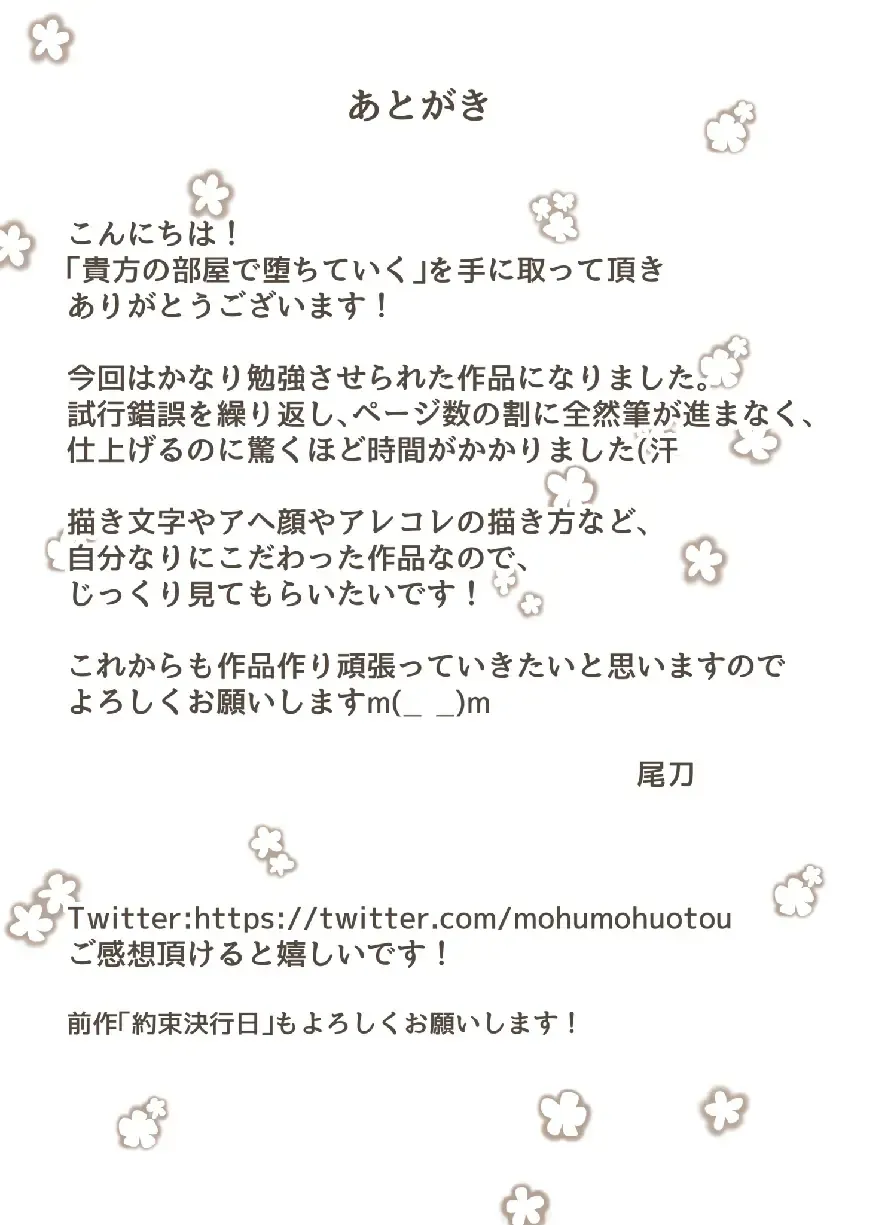 あとがき
こんにちは！
「貴方の部屋で堕ちていく」を手に取って頂き
ありがとうございます！
今回はかなり勉強させられた作品になりました。
試行錯誤を繰り返し、ページ数の割に全然筆が進まなく、
仕上げるのに驚くほど時間がかかりました(汗
描き文字やアヘ顔やアレコレの描き方など、
自分なりにこだわった作品なので、
じっくり見てもらいたいです！
これからも作品作り頑張っていきたいと思いますので
よろしくお願いしますm(_ _)m
尾刀
Twitter:https://twitter.com/mohumohuotou
ご感想頂けると嬉しいです！
前作「約束決行日」もよろしくお願いします！